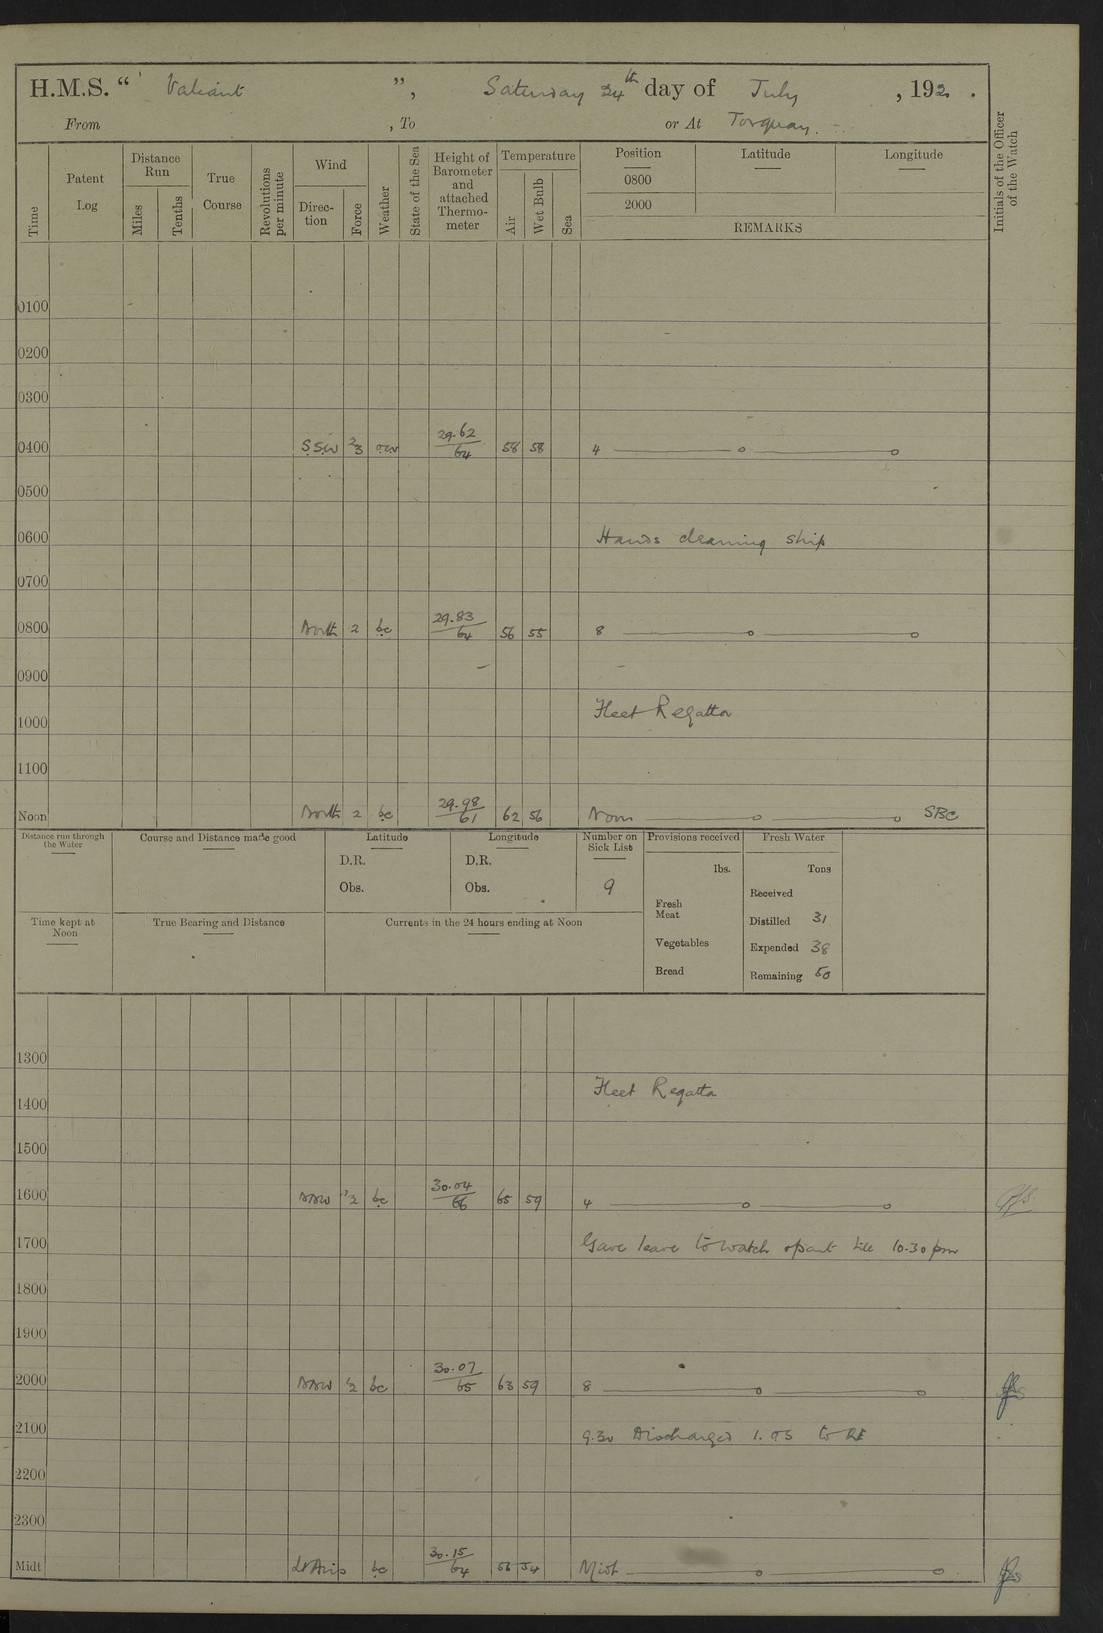 H.M.S. “ Valiant ”, Saturday 24th day of July , 192 .
From , To or At Torquay.
Time
Patent Log
Distance Run
Miles
Tenths
True Course
Revolutions per minute
Wind
Direction
Force
Weather
State of the Sea
Height of Barometer and attached Thermometer
Temperature
Air
Wet Bulb
Sea
Position
0800
2000
Latitude
Longitude
REMARKS
Initials of the Officer of the Watch
0100
0200
0300
0400 SSW 2/3 29.62 64 58 58 4
0500
0600 Hands cleaning ship
0700
0800 North 2 bc 29.83 64 56 55 8
0900
1000 Fleet Regatta
1100
Noon North 2 bc 29.98 61 62 56 Noon SBC
Distance run through the Water
Course and Distance made good
Latitude
D.R.
Obs.
Longitude
D.R.
Obs.
Number on Sick List
9
Provisions received
lbs.
Fresh Meat
Vegetables
Bread
Fresh Water
Tons
Received
Distilled 31
Expended 38
Remaining 50
Time kept at Noon
True Bearing and Distance
Currents in the 24 hours ending at Noon
1300
1400 Fleet Regatta
1500
1600 NNW 1/2 bc 30.04 66 65 59 4
1700 Gave leave to watch & part till 10.30 pm
1800
1900
2000 NNW 1/2 bc 30.07 65 63 59 8
2100 9.30 Discharged 1. OS to
2200
2300
Midt Lt Airs bc 30.15 64 56 54 Midt